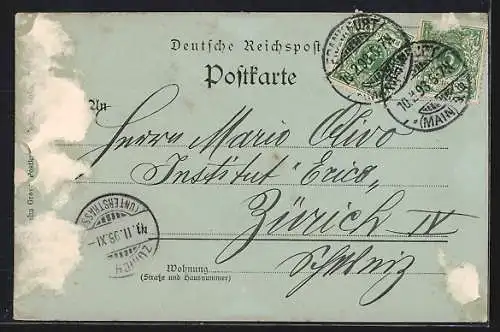 Deutsche Reichspost
Postkarte
An
Herrn Mario Olivo
Institut "Erica"
Zürich IV
Schweiz
Wohnung
(Straße und Hausnummer)
FRANKFURT
(MAIN)
ZÜRICH
(UNTERSTRASS)